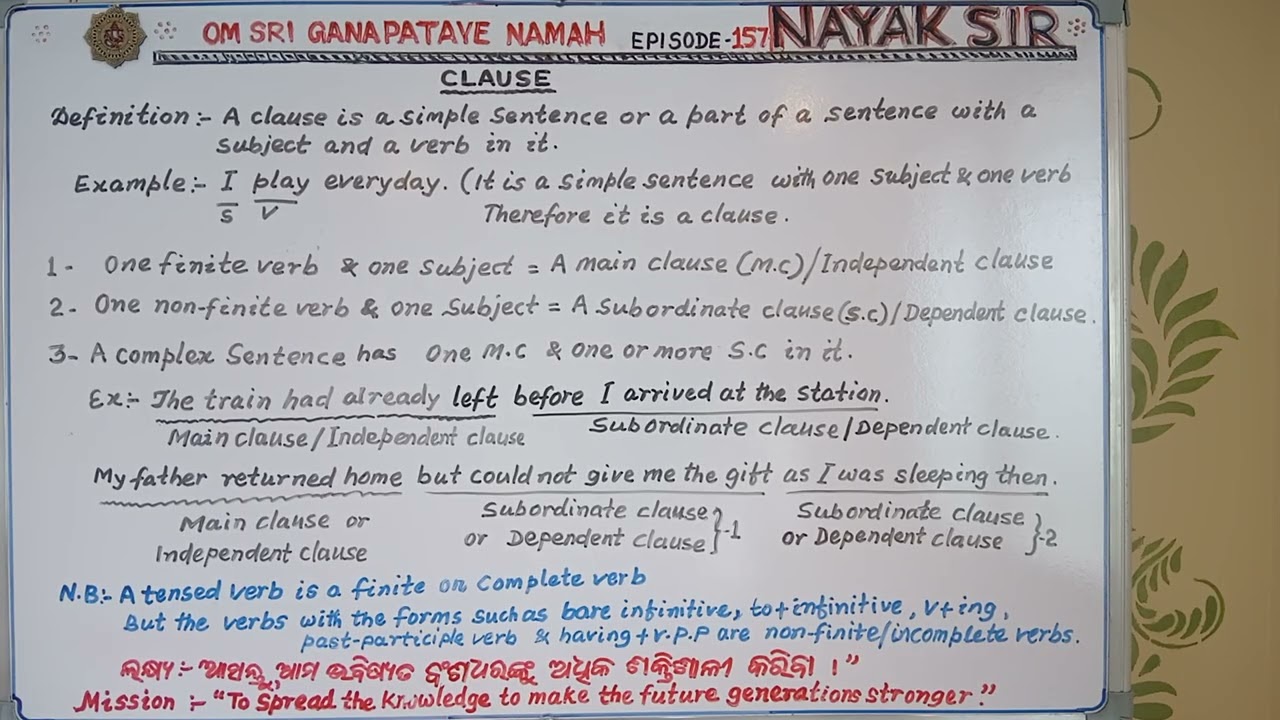 OM SRI GANAPATAYE NAMAH EPISODE-157 NAYAK SIR
CLAUSE
Definition:- A clause is a simple sentence or a part of a sentence with a
subject and a verb in it.
Example:- I play everyday. (It is a simple sentence with one subject & one verb
S V Therefore it is a clause.
1- One finite verb & one subject = A main clause (M.C)/Independent clause
2- One non-finite verb & one subject = A subordinate clause(S.C)/Dependent clause.
3- A complex sentence has one M.C & one or more S.C in it.
Ex:- The train had already left before I arrived at the station.
Main clause/Independent clause Subordinate clause/Dependent clause.
My father returned home but could not give me the gift as I was sleeping then.
Main clause or Subordinate clause Subordinate clause
Independent clause or Dependent clause }-1 or Dependent clause }-2
N.B:- A tensed verb is a finite or complete verb
But the verbs with the forms such as bare infinitive, to+infinitive, v+ing,
past-participle verb & having+v.p.p are non-finite/incomplete verbs.
ଲକ୍ଷ୍ୟ:- ଆସନ୍ତୁ, ଆମ ଭବିଷ୍ୟତ ବଂଶଧରଙ୍କୁ ଅଧିକ ଶକ୍ତିଶାଳୀ କରିବା ।"
Mission:- "To Spread the Knowledge to make the future generations stronger."